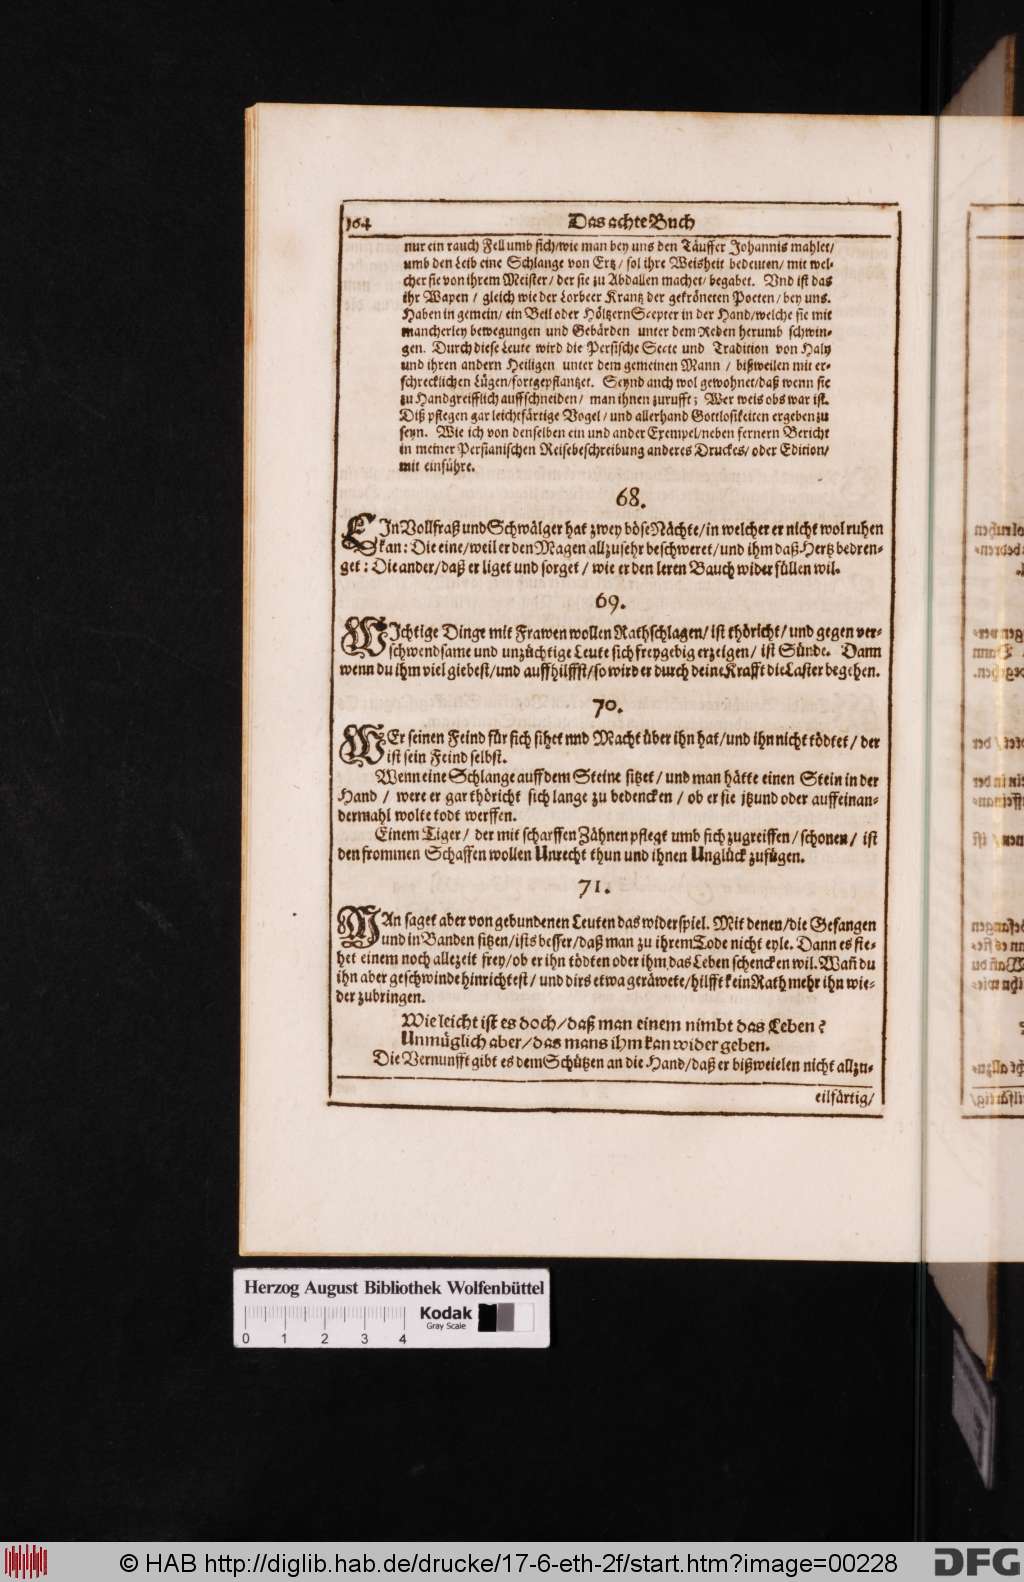 164
Das achte Buch
nur ein rauch Fell umb sich/wie man bey uns den Täuffer Johannis mahlet/
umb den Leib eine Schlange von Ertz/ sol ihre Weisheit bedeuten/ mit wel-
cher sie von ihrem Meister/ der sie zu Abdallen machet/ begabet. Vnd ist das
ihr Wapen / gleich wie der Lorbeer Krantz der gekröneten Poeten/ bey uns.
Haben in gemein/ ein Beil oder Höltzern Scepter in der Hand/welche sie mit
mancherley bewegungen und Gebärden unter dem Reden herumb schwin-
gen. Durch diese Leute wird die Persische Secte und Tradition von Haly
und ihren andern Heiligen unter dem gemeinen Mann / bißweilen mit er-
schrecklichen Lügen/fortgepflantzet. Seynd auch wol gewohnet/daß wenn sie
zu Handgreifflich auffschneiden/ man ihnen zurufft; Wer weis obs war ist.
Diß pflegen gar leichtfärtige Vogel/ und allerhand Gottlosikeiten ergeben zu
seyn. Wie ich von denselben ein und ander Exempel/neben fernern Bericht
in meiner Persianischen Reisebeschreibung anderes Druckes/ oder Edition/
mit einführe.
68.
EIn Vollfraß und Schwälger hat zwey böse Nächte/in welcher er nicht wol ruhen
kan: Die eine/weil er den Magen allzusehr beschweret/und ihm daß Hertz bedren-
get: Die ander/daß er liget und sorget / wie er den leren Bauch wider füllen wil.
69.
WIchtige Dinge mit Frawen wollen Rathschlagen/ ist thöricht/ und gegen ver-
schwendsame und unzüchtige Leute sich freygebig erzeigen/ ist Sünde. Dann
wenn du ihm viel giebest/und auffhilffst/so wird er durch deine Krafft die Laster begehen.
70.
WEr seinen Feind für sich sihet und Macht über ihn hat/und ihn nicht tödtet/ der
ist sein Feind selbst.
Wenn eine Schlange auff dem Steine sitzet/ und man hätte einen Stein in der
Hand / were er gar thöricht sich lange zu bedencken / ob er sie jtzund oder auff einan-
dermahl wolte todt werffen.
Einem Tiger/ der mit scharffen Zähnen pflegt umb sich zugreiffen/schonen/ ist
den frommen Schaffen wollen Unrecht thun und ihnen Unglück zufügen.
71.
MAn saget aber von gebundenen Leuten das widerspiel. Mit denen/die Gefangen
und in Banden sitzen/ists besser/daß man zu ihrem Tode nicht eyle. Dann es ste-
het einem noch allezeit frey/ob er ihn tödten oder ihm das Leben schencken wil. Wañ du
ihn aber geschwinde hinrichtest/ und dirs etwa geräwete/hilfft kein Rath mehr ihn wie-
der zubringen.
Wie leicht ist es doch/daß man einem nimbt das Leben?
Unmüglich aber/das mans ihm kan wider geben.
Die Vernunfft gibt es dem Schützen an die Hand/daß er bißweielen nicht allzu-
eilfärtig/
Herzog August Bibliothek Wolfenbüttel
Kodak
Gray Scale
0 1 2 3 4
© HAB http://diglib.hab.de/drucke/17-6-eth-2f/start.htm?image=00228
DFG